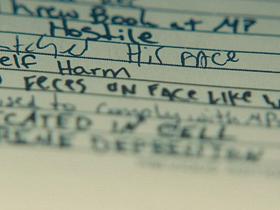 threw Book at MP
Hostile
His FACE
elf Harm
feces ON FACE LIKE
used to comply with MP
CATED IN CELL